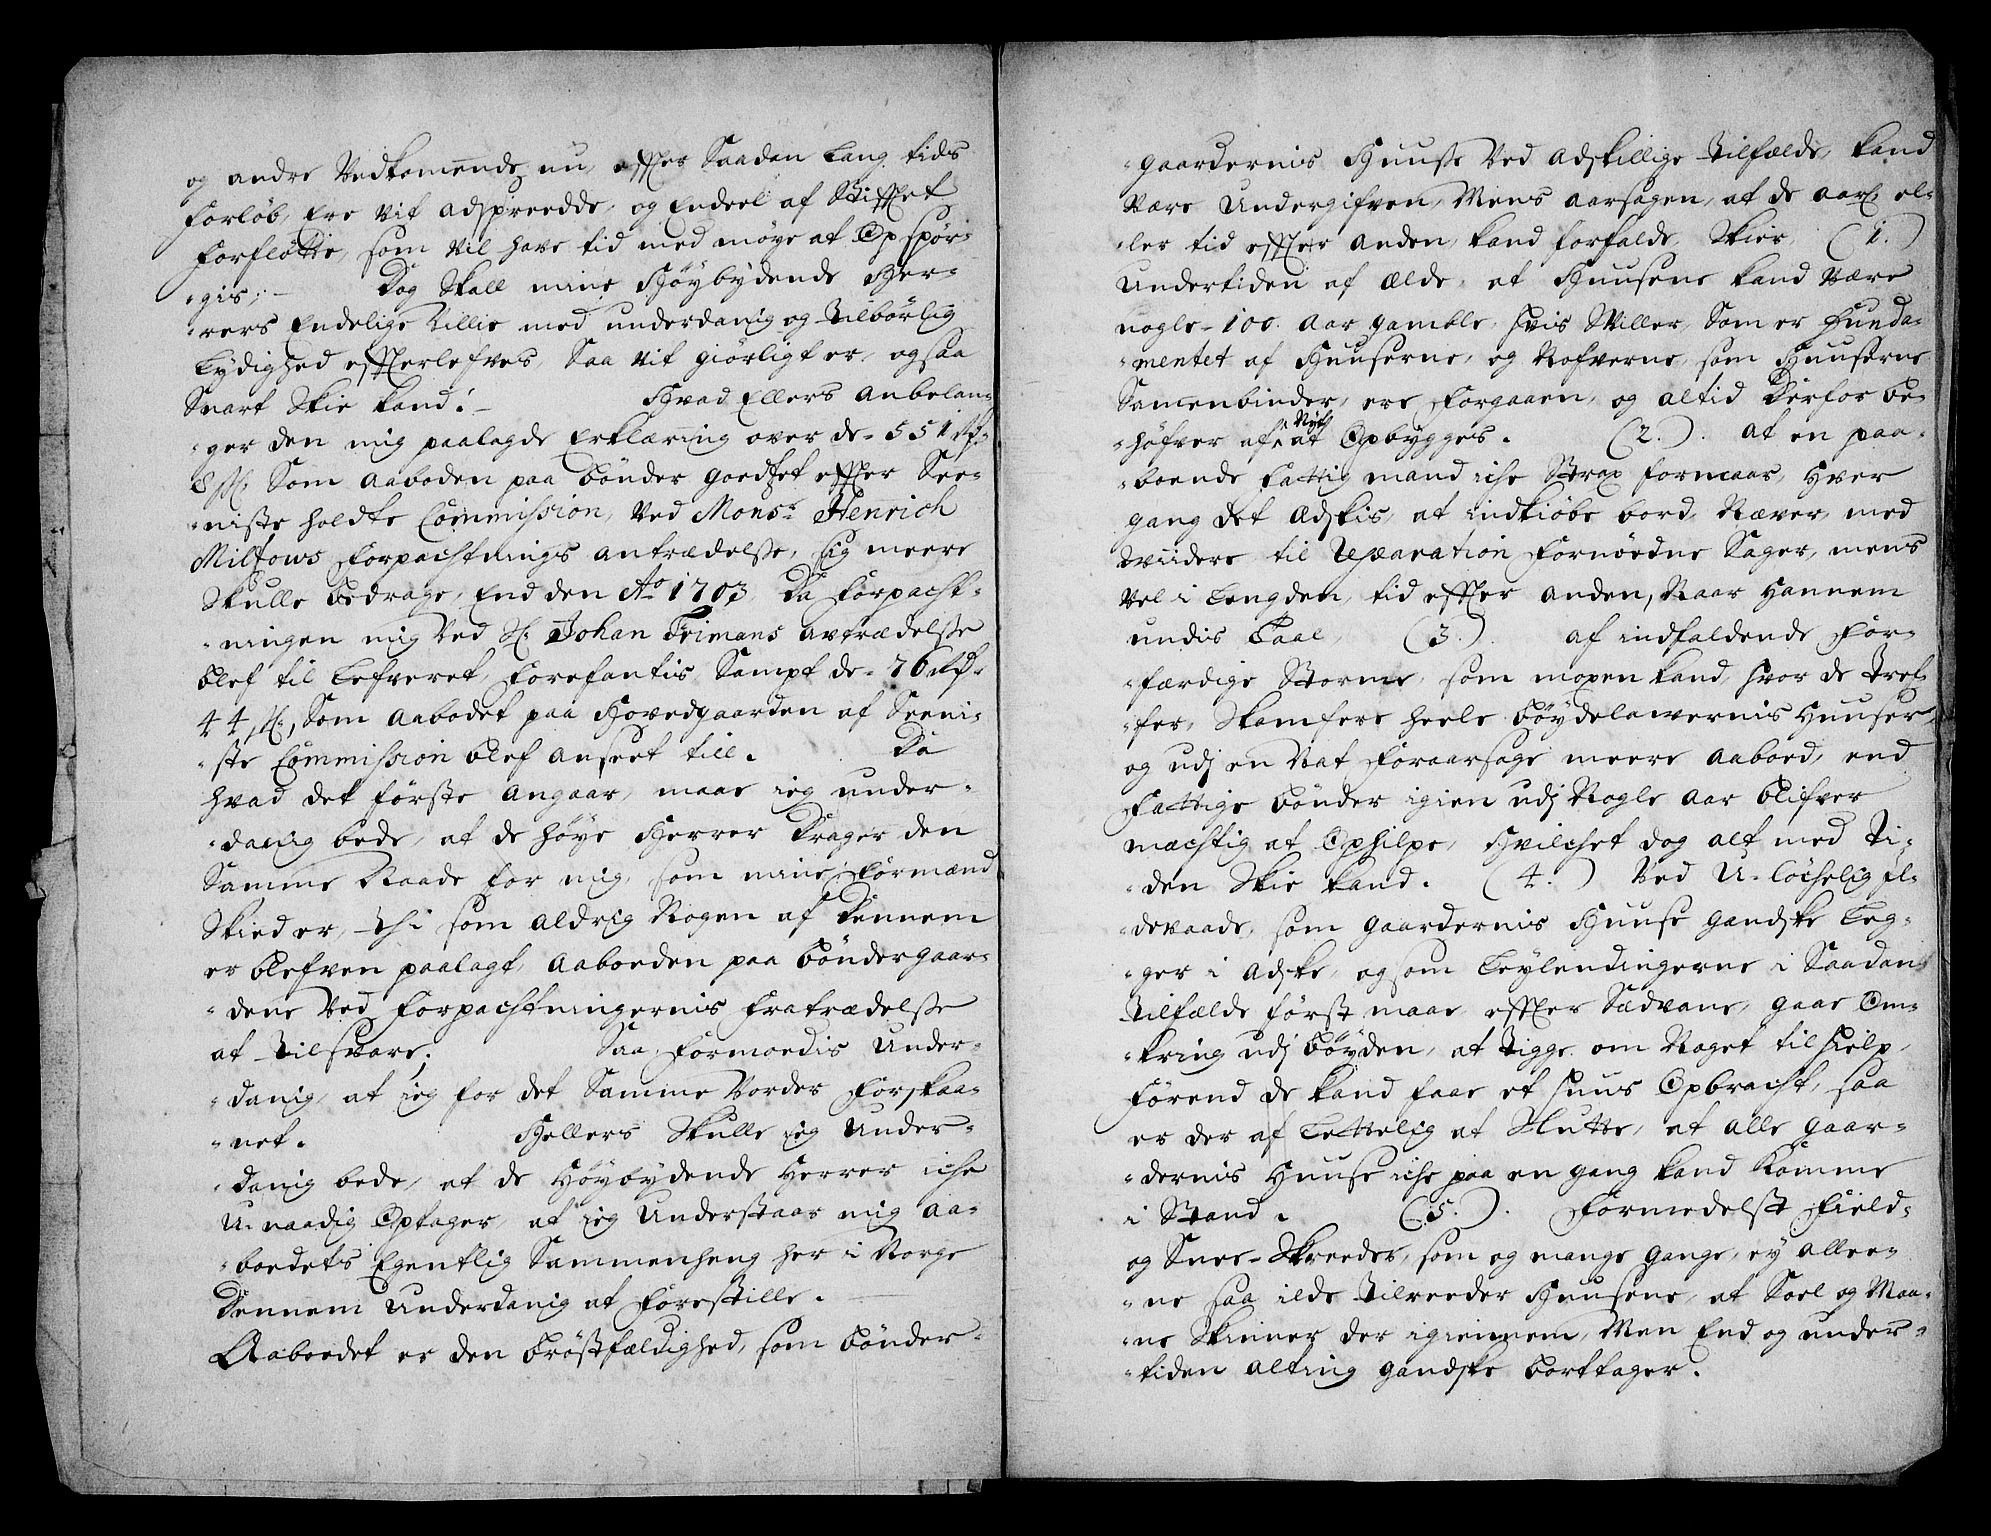 og andre Vedkomende nu, efter Saadan Lang tids
forløb, ere vit adspreedde, og Endeel af Stiftet
forfløtte, som vil have tid med møye at Opspør-
-gis; - Dog Skall mine Høybydende Her-
-rers Endelige Villie med underdanig og Tilbørlig
Lydighed efterlefves, Saa vit giørligt er, og saa
Snart Skie kand: -  Hvad Ellers anbelan-
-ger den mig paalagde Erklæring over de 551 Rd:
8 s: Som Aaboden paa Bønder goedset efter See-
-niste holdte Commission, ved Monsr Henrich
Miltzows Forpachtnings antrædelse, sig meere
Skulle bedrage, End den Ao 1703 Da Forpacht-
-ningen mig ved Sl: Johan Frimans aftrædelse
blef til Lefveret, forefantis Sampt de 76 Rd:
44 s:, Som Aabodet paa Hovedgaarden af Seeni-
-ste Commission blef anseet till. Da
hvad det første angaar, maae ieg under-
-danig bede, at de høye Herrer Drager den
Samme Naade for mig, som mine Formænd
Skied er, thi som aldrig Nogen af Dennem
er blefven paalagt, Aaboeden paa Bøndergaar-
-dene ved Forpachtningernis Fratrædelse
at Tilsvare; Saa formoedis Under-
-danig, at ieg for det Samme vorder forskaa-
-net. Hellers Skulle ieg under-
-danig bede, at de Høybydende Herrer iche
U-naadig Optager, at ieg understaar mig Aa-
-boedets Egentlig Sammenheng her i Norge
Dennem underdanig at forestille.
Aaboedet er den brøstfældighed, som bønder-
-gaardernis Huuse ved adskillige Tilfælde, kand
være undergifven, Mens aarsagen, at de aarl: el-
-ler tid efter anden, kand forfalde, Skier, (1.)
Undertiden af ælde, at Huusene kand være
nogle 100. Aar gamble, hvis Stiller, Som er Funda-
-mentet af Huuserne, og Nofverne, som Huuserne
Samenbinder, ere forgaaen, og altid Derfor be-
-høfver af Nyt at Opbygges. (2.). At en paa-
-boende fattig mand iche Strax formaar, hver
gang det adskis, at indkiøbe bord, Næver, med
widere til Reparation fornøedne Sager, mens
vel i Lengden, tid efter anden, Naar hannem
undis Taal, (3.). af indfaldende for-
-færdige Storme, som mogen kand, hvor de Tref-
-fer, Skamfere heele bøydelawernis Huuser,
og udj en Nat foraarsage meere Aaboed, end
Fattige bønder igien udj Nogle Aar blifver
mæchtig at Ophilpe, Hvilchet dog alt med Ti-
-den Skie kand. (4.) Ved U-løchelig Il-
-devaade, som gaardernis Huuse gandske Leg-
-ger i Adske, og som Leylendingerne i Saadan
Tilfælde først maae efter Sædvane, gaae Om-
-kring udj bøyden, at Tigge om Noget til hielp,
Førend de kand faae et huus Opbracht, saa
er der af Lettelig at Slutte, at alle gaar-
-dernis Huuse iche paa en gang kand komme
i Stand. (5.). Formedelst Field-
og Snee-Skreeder, som og mange gange, ey allee-
-ne saa ilde Tilreeder Huusene, at Soel og Maa-
-ne Skinner der igiennem, Men End og under-
-tiden alting gandske borttager.